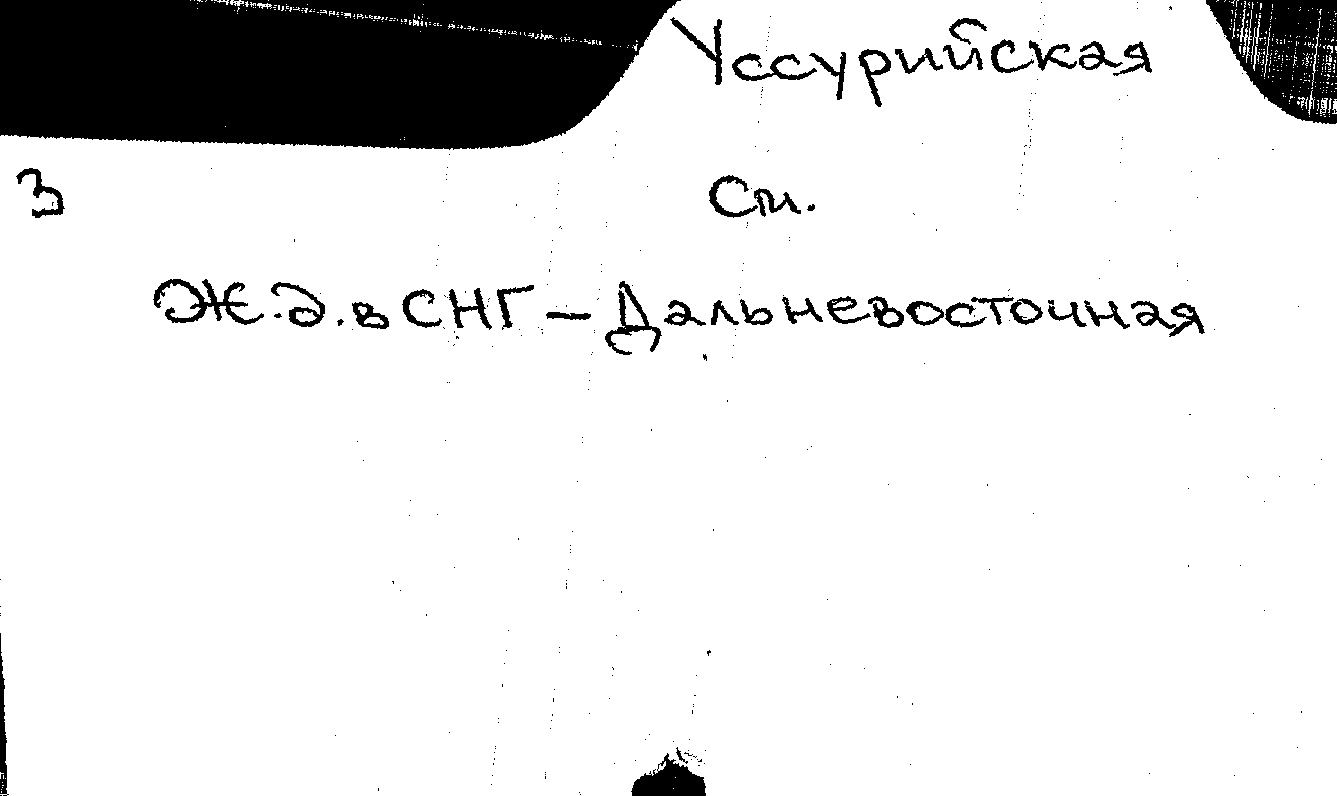 Уссурийская
3 См.
Ж.д. в СНГ — Дальневосточная